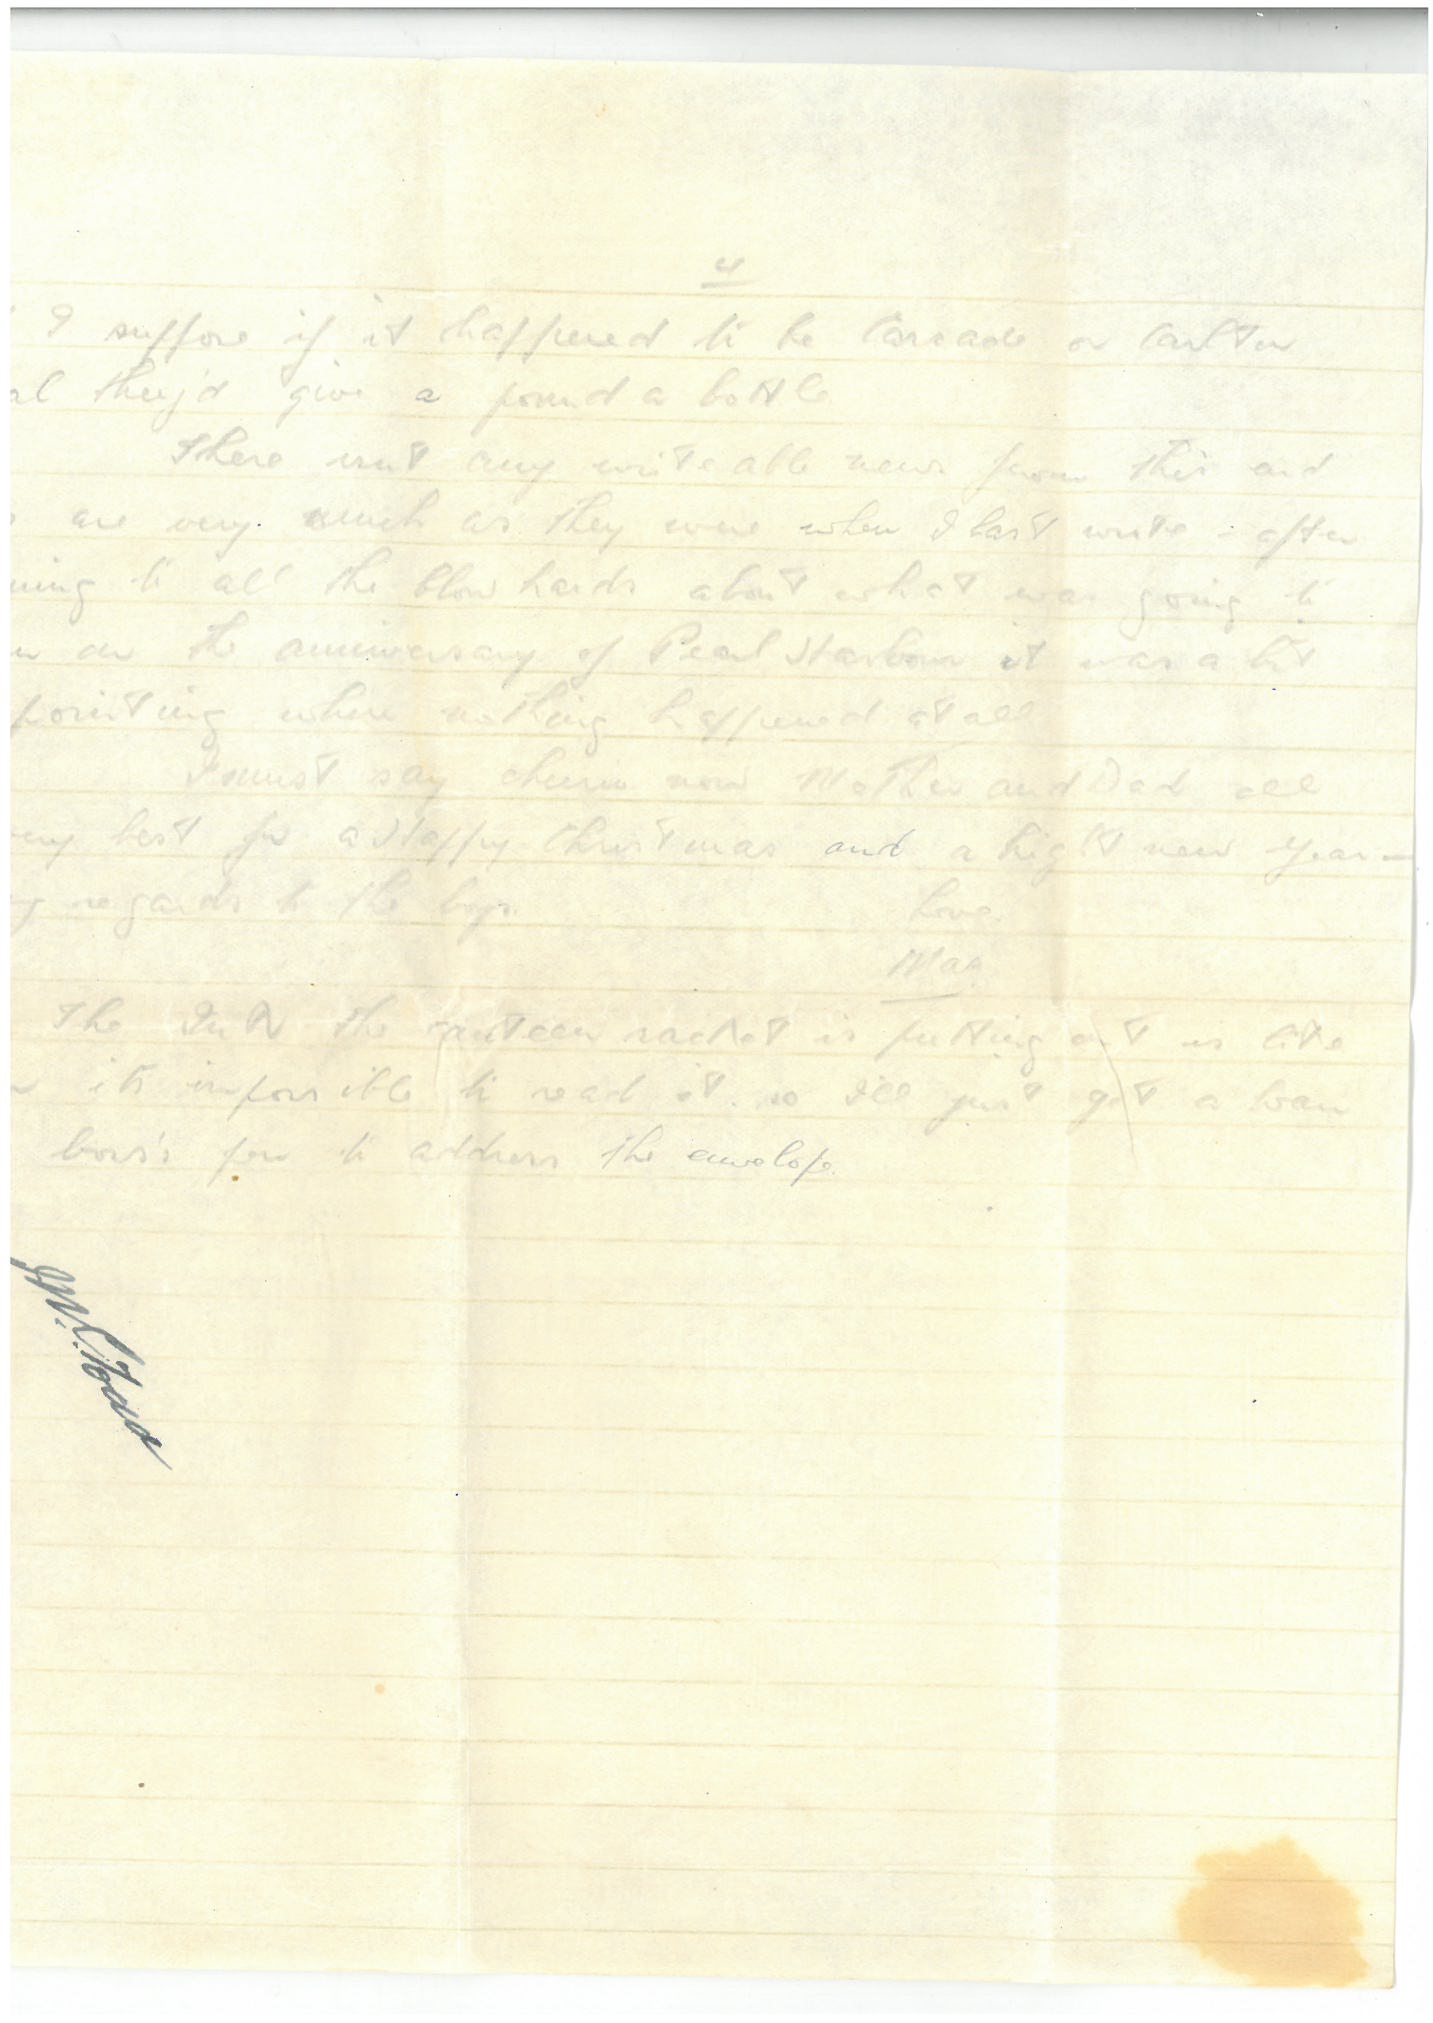 4
I suppose if it happened to be Cascade or Carlton
they'd give a pound a bottle
There isnt any writeable news from this end
are very much as they were when I last wrote - after
ning to all the blow hards about what was going to
on the anniversary of Pearl Harbour it was a bit
pointing when nothing happened at all
I must say cheerio now Mother and Dad all
ery best for a Happy Christmas and a bright new year -
regards to the boys.
Love.
Mac.
The Ink the canteen racket is putting out is like
its impossible to read it. so I'll just get a loan
boss's pen to address the envelope.